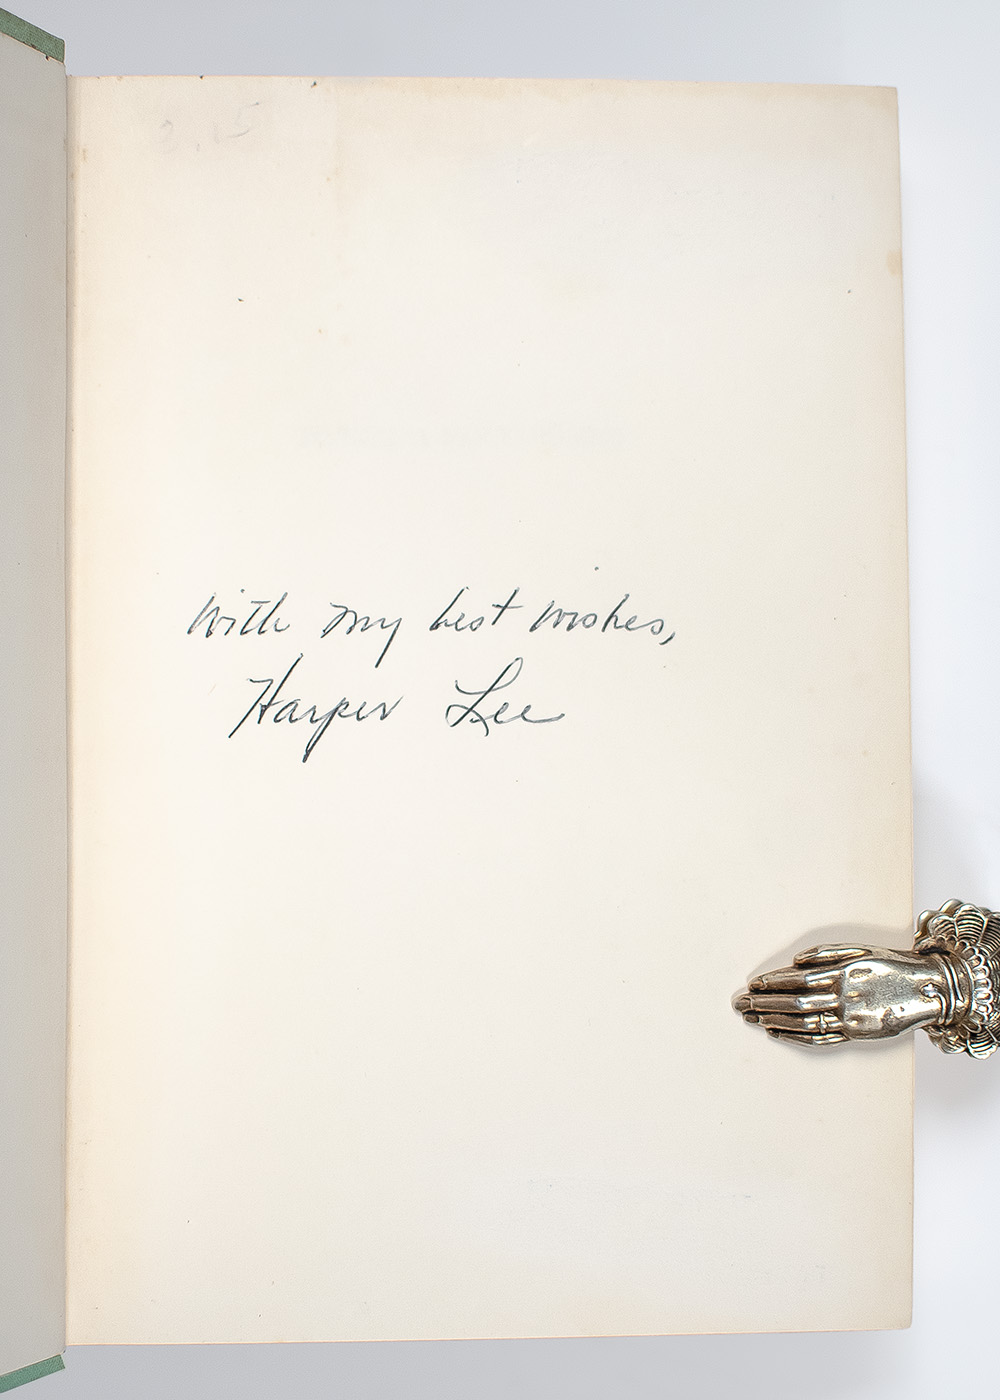 With my best wishes,
Harper Lee